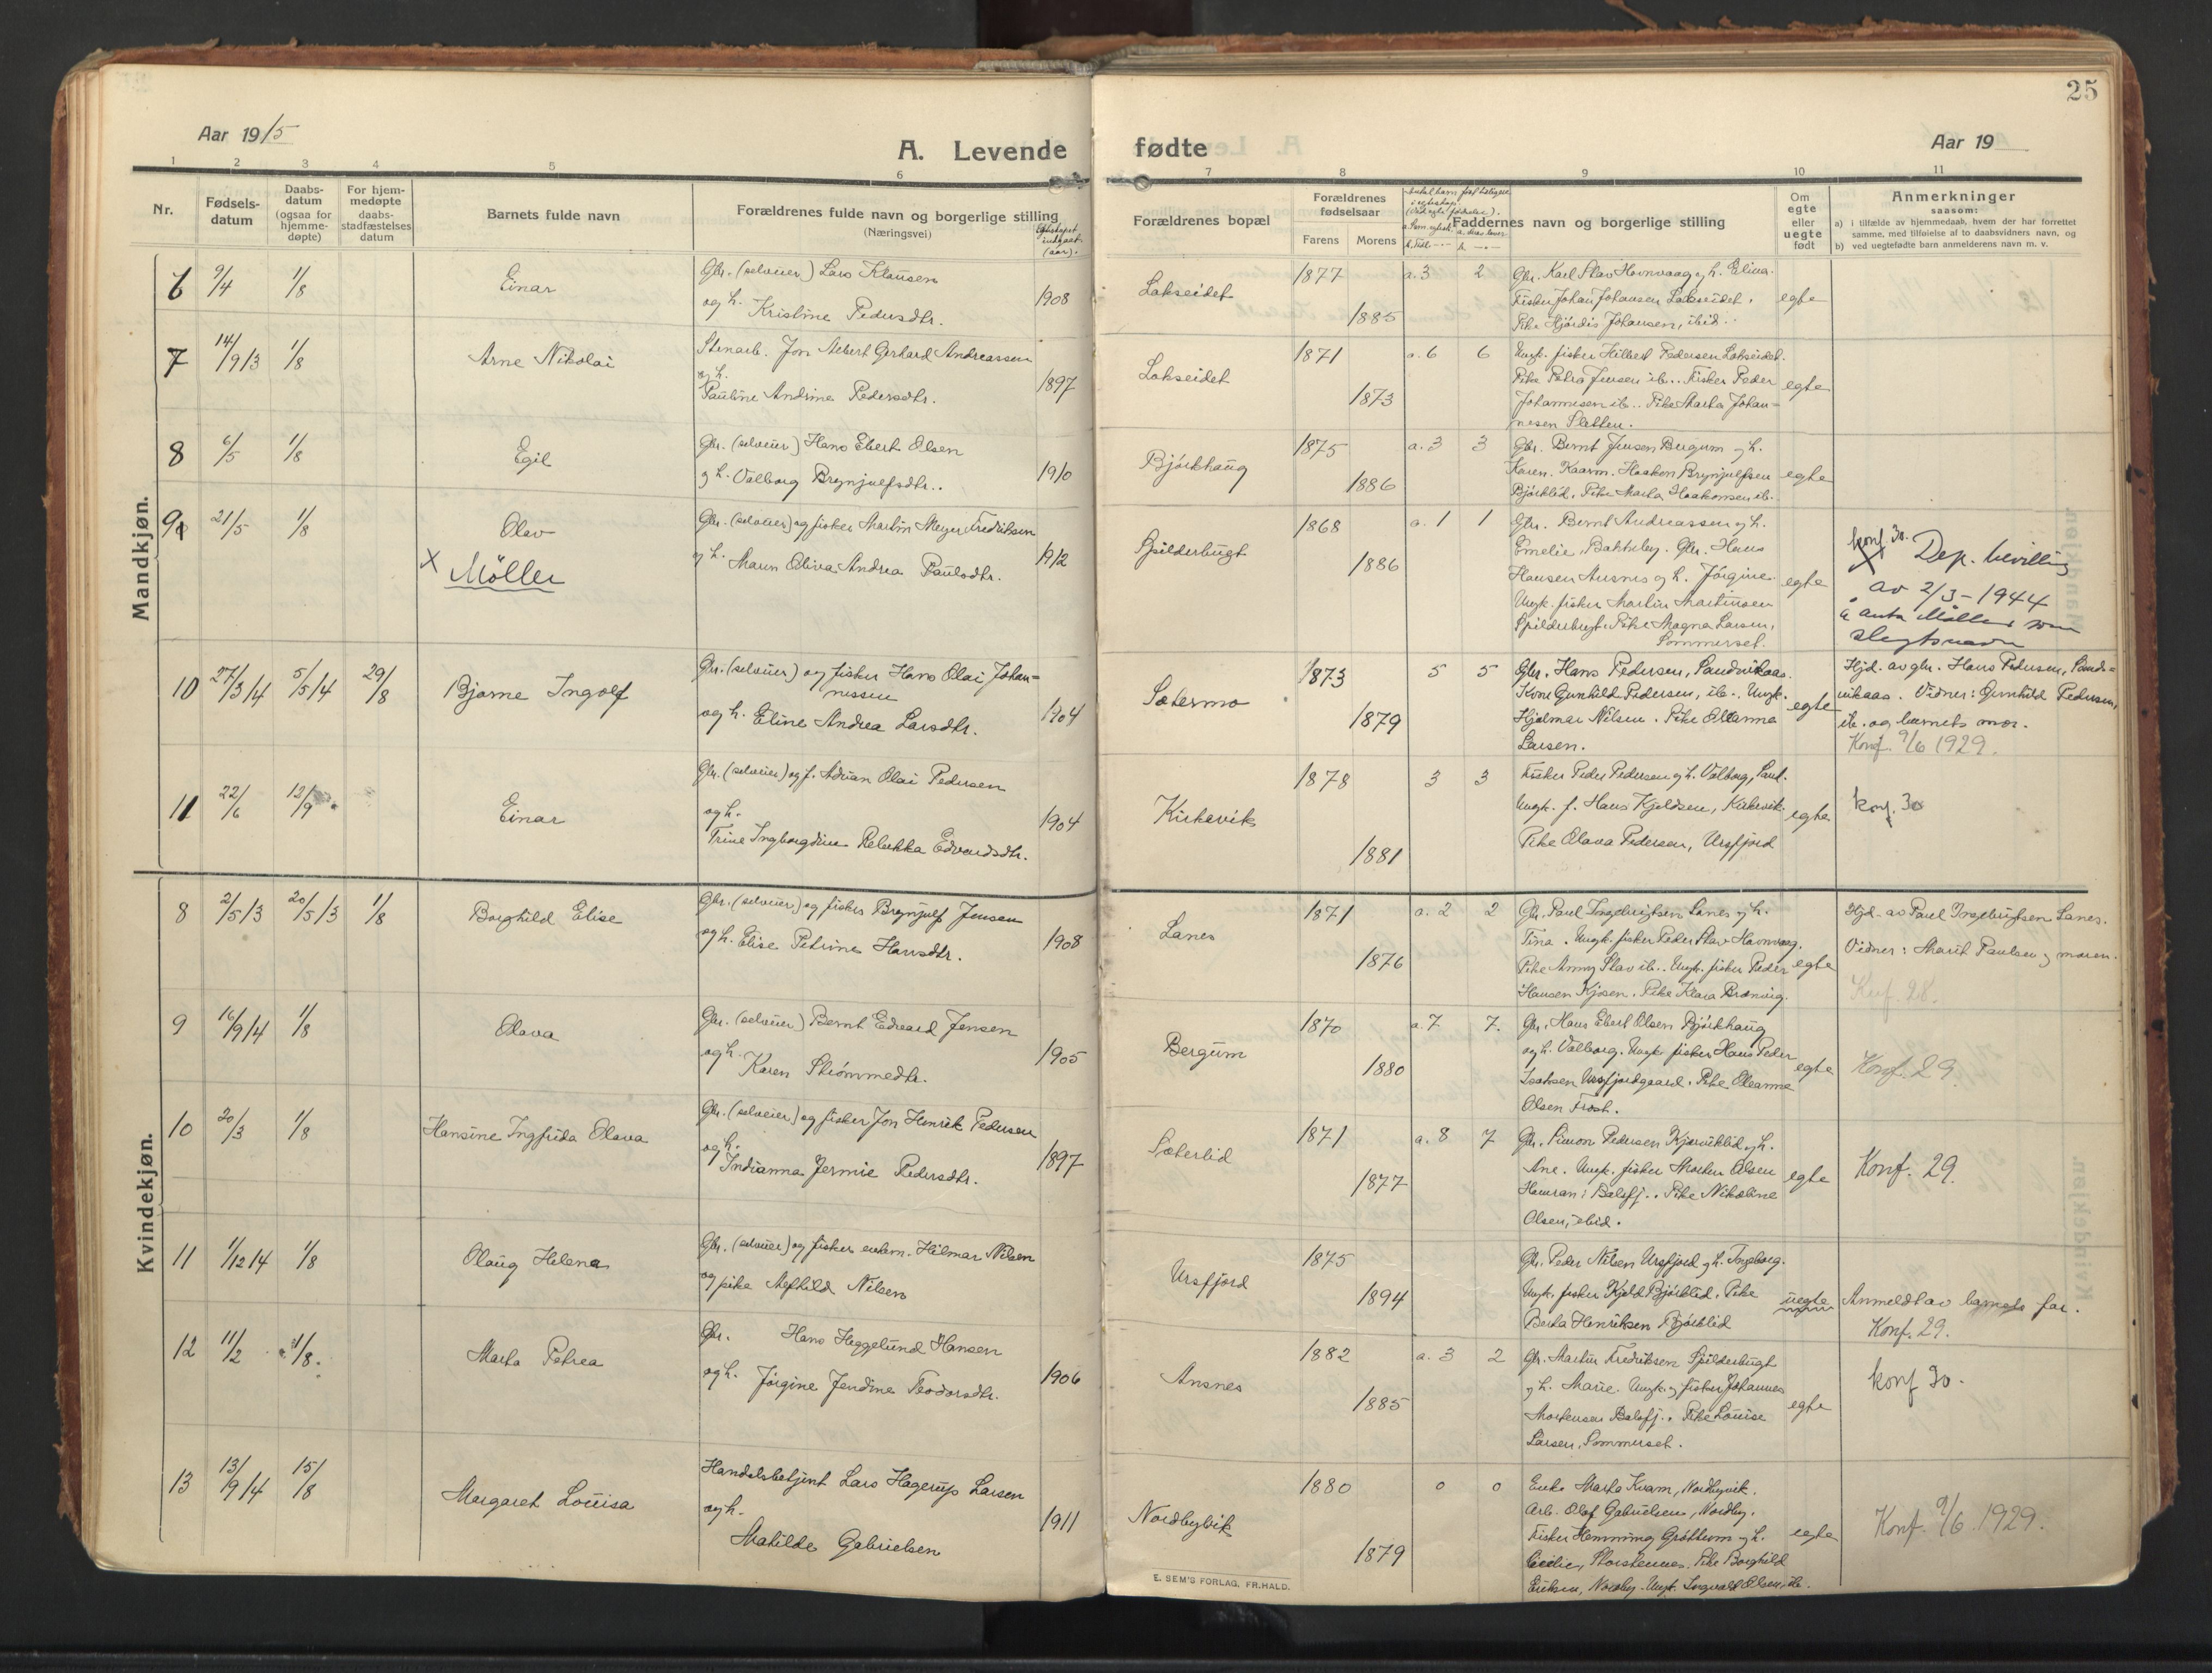 25
Aar 1915
A. Levende
1 2 3 4 5 6
Nr.
Fødsels-
datum
Daabs-
datum
(ogsaa for
hjemme-
døpte)
For hjem-
medøpte
daabs-
stadfæstelses
datum
Barnets fulde navn
Forældrenes fulde navn og borgerlige stilling
(Næringsvei)
Egteskapet
indgaat
(aar).
Mandkjøn.
6 9/4 1/8 Einar
Gbr. (selveier) Lars Klausen
og h. Kristine Pedersdtr. 1908
7 14/9 13 1/8 Arne Nikolai
Stenarb. Jon Albert Gerhard Andreassen
og h.
Pauline Andrine Pedersdtr. 1897
8 6/5 1/8 Egil
Gbr. (selveier) Hans Ebert Olsen
og h. Valborg Brynjulfsdtr.. 1910
9 21/5 1/8 Olav
X Möller
Gbr. (selveier) og fisker Martin Meyer Fredriksen
og h. Maren Oliva Andrea Paulsdtr. 1912
10 27/3 14 5/5 14 29/8 Bjarne Ingolf
Gbr. (selveier) og fisker Hans Olai Johan=
nessen
og h. Eline Andrea Larsdtr. 1904
11 22/6 12/9 Einar
Gbr. (selveier) og f. Adrian Olai Pedersen
og h.
Trine Ingborgdine Rebekka Edvardsdtr. 1904
Kvindekjøn.
8 2/5 13 20/5 13 1/8 Borghild Elise
Gbr. (selveier) og fisker Brynjulf Jensen
og h. Elise Petrine Hansdtr. 1908
9 16/9 14 1/8 Olava
Gbr. (selveier) Bernt Edvard Jensen
og h.
Karen Strömmedtr. 1905
10 20/3 1/8 Hansine Ingfrida Olava
Gbr. (selveier) og fisker Jon Henrik Pedersen
og h.
Indianna Jermie Pedersdtr. 1897
11 1/12 14 1/8 Olaug Helena
Gbr. (selveier) og fisker enkem. Hilmar Nilsen
og pike Alfhild Nilsen
12 11/2 1/8. Marta Petrea
Gbr. Hans Heggelund Hansen
og h. Jörgine Jendine Teodorsdtr. 1906
13 13/9 14 15/8 Margaret Lovisa
Handelsbetjent Lars Hagerup Larsen
og h.
Matilde Gabrielsen 1911
fødte
Aar 19
7 8 9 10 11
Forældrenes bopæl
Forældrenes
fødselsaar
Farens Morens
Faddernes navn og borgerlige stilling
Om
egte
eller
uegte
født
Anmerkninger
saasom:
a) i tilfælde av hjemmedaab, hvem der har forrettet
samme, med tilføielse af to daabsvidners navn, og
b) ved uegtefødte barn anmelderens navn m. v.
Lakseidet 1877 1885 a. 3 2
Gbr. Karl Slav Havnvaag og h. Elina.
Fisker Johan Johansen Lakseidet.
Pike Hjördis Johansen, ibid..
egte
Lakseidet 1871 1873 a. 6 6
Ungk. fisker Hilbert Pedersen Lakseidet.
Pike Petra Jensen ib.. Fisker Peder
Johannesen ib.. Pike Marta Johan=
nesen Sletten.
egte
Björkhaug 1875 1886 a. 3 3
Gbr. Bernt Jensen Bergum og h.
Karen. Kaarm. Haakon Brynjulfsen
Björklid. Pike Marta Haakonsen ib.
egte
Spilderbugt 1868 1886 a. 1 1
Gbr. Bernt Andreassen og h.
Emelie, Bakkeby. Gbr. Hans
Hansen Ansnes og h. Jörgine.
Ungk. fisker Martin Martinsen
Spilderbugt. Pike Magna Larsen,
Sommerset.
egte
konf. 30.
X Dep. bevilling
av 2/3-1944
å anta Möller som
slegtsnavn
Sætermo 1873 1879 5 5
Gbr. Hans Pedersen, Sandvikaas.
Kone Gunhild Pedersen, ib.. Ungk.
Hjalmar Nilsen. Pike Oleanna
Larsen.
egte
Hjd. av gbr. Hans Pedersen, Sand=
vikaas. Vidner: Gunhild Pedersen,
ib. og barnets mor.
Konf. 9/6 1929.
Kirkevik 1878 1881 3 3
Fisker Peder Pedersen og h. Valborg,
Ungk. f. Hans Kjeldsen, Kirkevik.
Pike Olava Pedersen, Ursfjord
egte
konf. 30
Lanes 1871 1876 a. 2 2
Gbr. Paul Ingebrigtsen Lanes og h.
Tina. Ungk. fisker Peder Slav Havnvaag.
Pike Anny Slav ib.. Ungk. fisker Peder
Hansen Kjosen. Pike Klara Brænvig.
egte
Hjd. av Paul Ingebrigtsen Lanes.
Vidner: Marit Paulsen og moren.
Konf. 28.
Bergum 1870 1880 a. 7 7.
Gbr. Hans Ebert Olsen Björkhaug
og h. Valborg. Ungk. fisker Hans Peder
Isaksen Ursfjordgaard. Pike Oleanna
Olsen
egte
Konf. 29.
Sæterlid 1871 1877 a. 8 7
Gbr. Simon Pedersen Kjørviklid og h.
Ane. Ungk. fisker Morten Olsen
Balsfj.. Pike Nikoline
Olsen, ibid.
egte
Konf. 29.
Ursfjord 1875 1894
Gbr. Peder Nilsen Ursfjord og h. Ingeborg.
Ungk. fisker Kjeld Björklid. Pike
Berta Henriksen Björklid
uegte
Anmeldt av barnets far.
Konf. 29.
Ansnes 1882 1885 a. 3 2
Gbr. Martin Fredriksen Spilderbugt
og h. Marie. Ungk. og fisker Johannes
Mortensen Balsfj.. Pike Louise
Larsen, Sommerset.
egte
konf 30.
Nordbyvik 1880 1879 0 0
Enke Marta Kvam, Nordbyvik.
Arb. Olaf Gabrielsen, Nordby.
Fisker Henning Gröttum og h.
Cecilie, Storstennes. Pike Borghild
Eriksen, Nordby. Ungk. Ingvald Olsen, ib.
egte
Konf. 9/6 1929.
E. SEM'S FORLAG, FR.HALD.